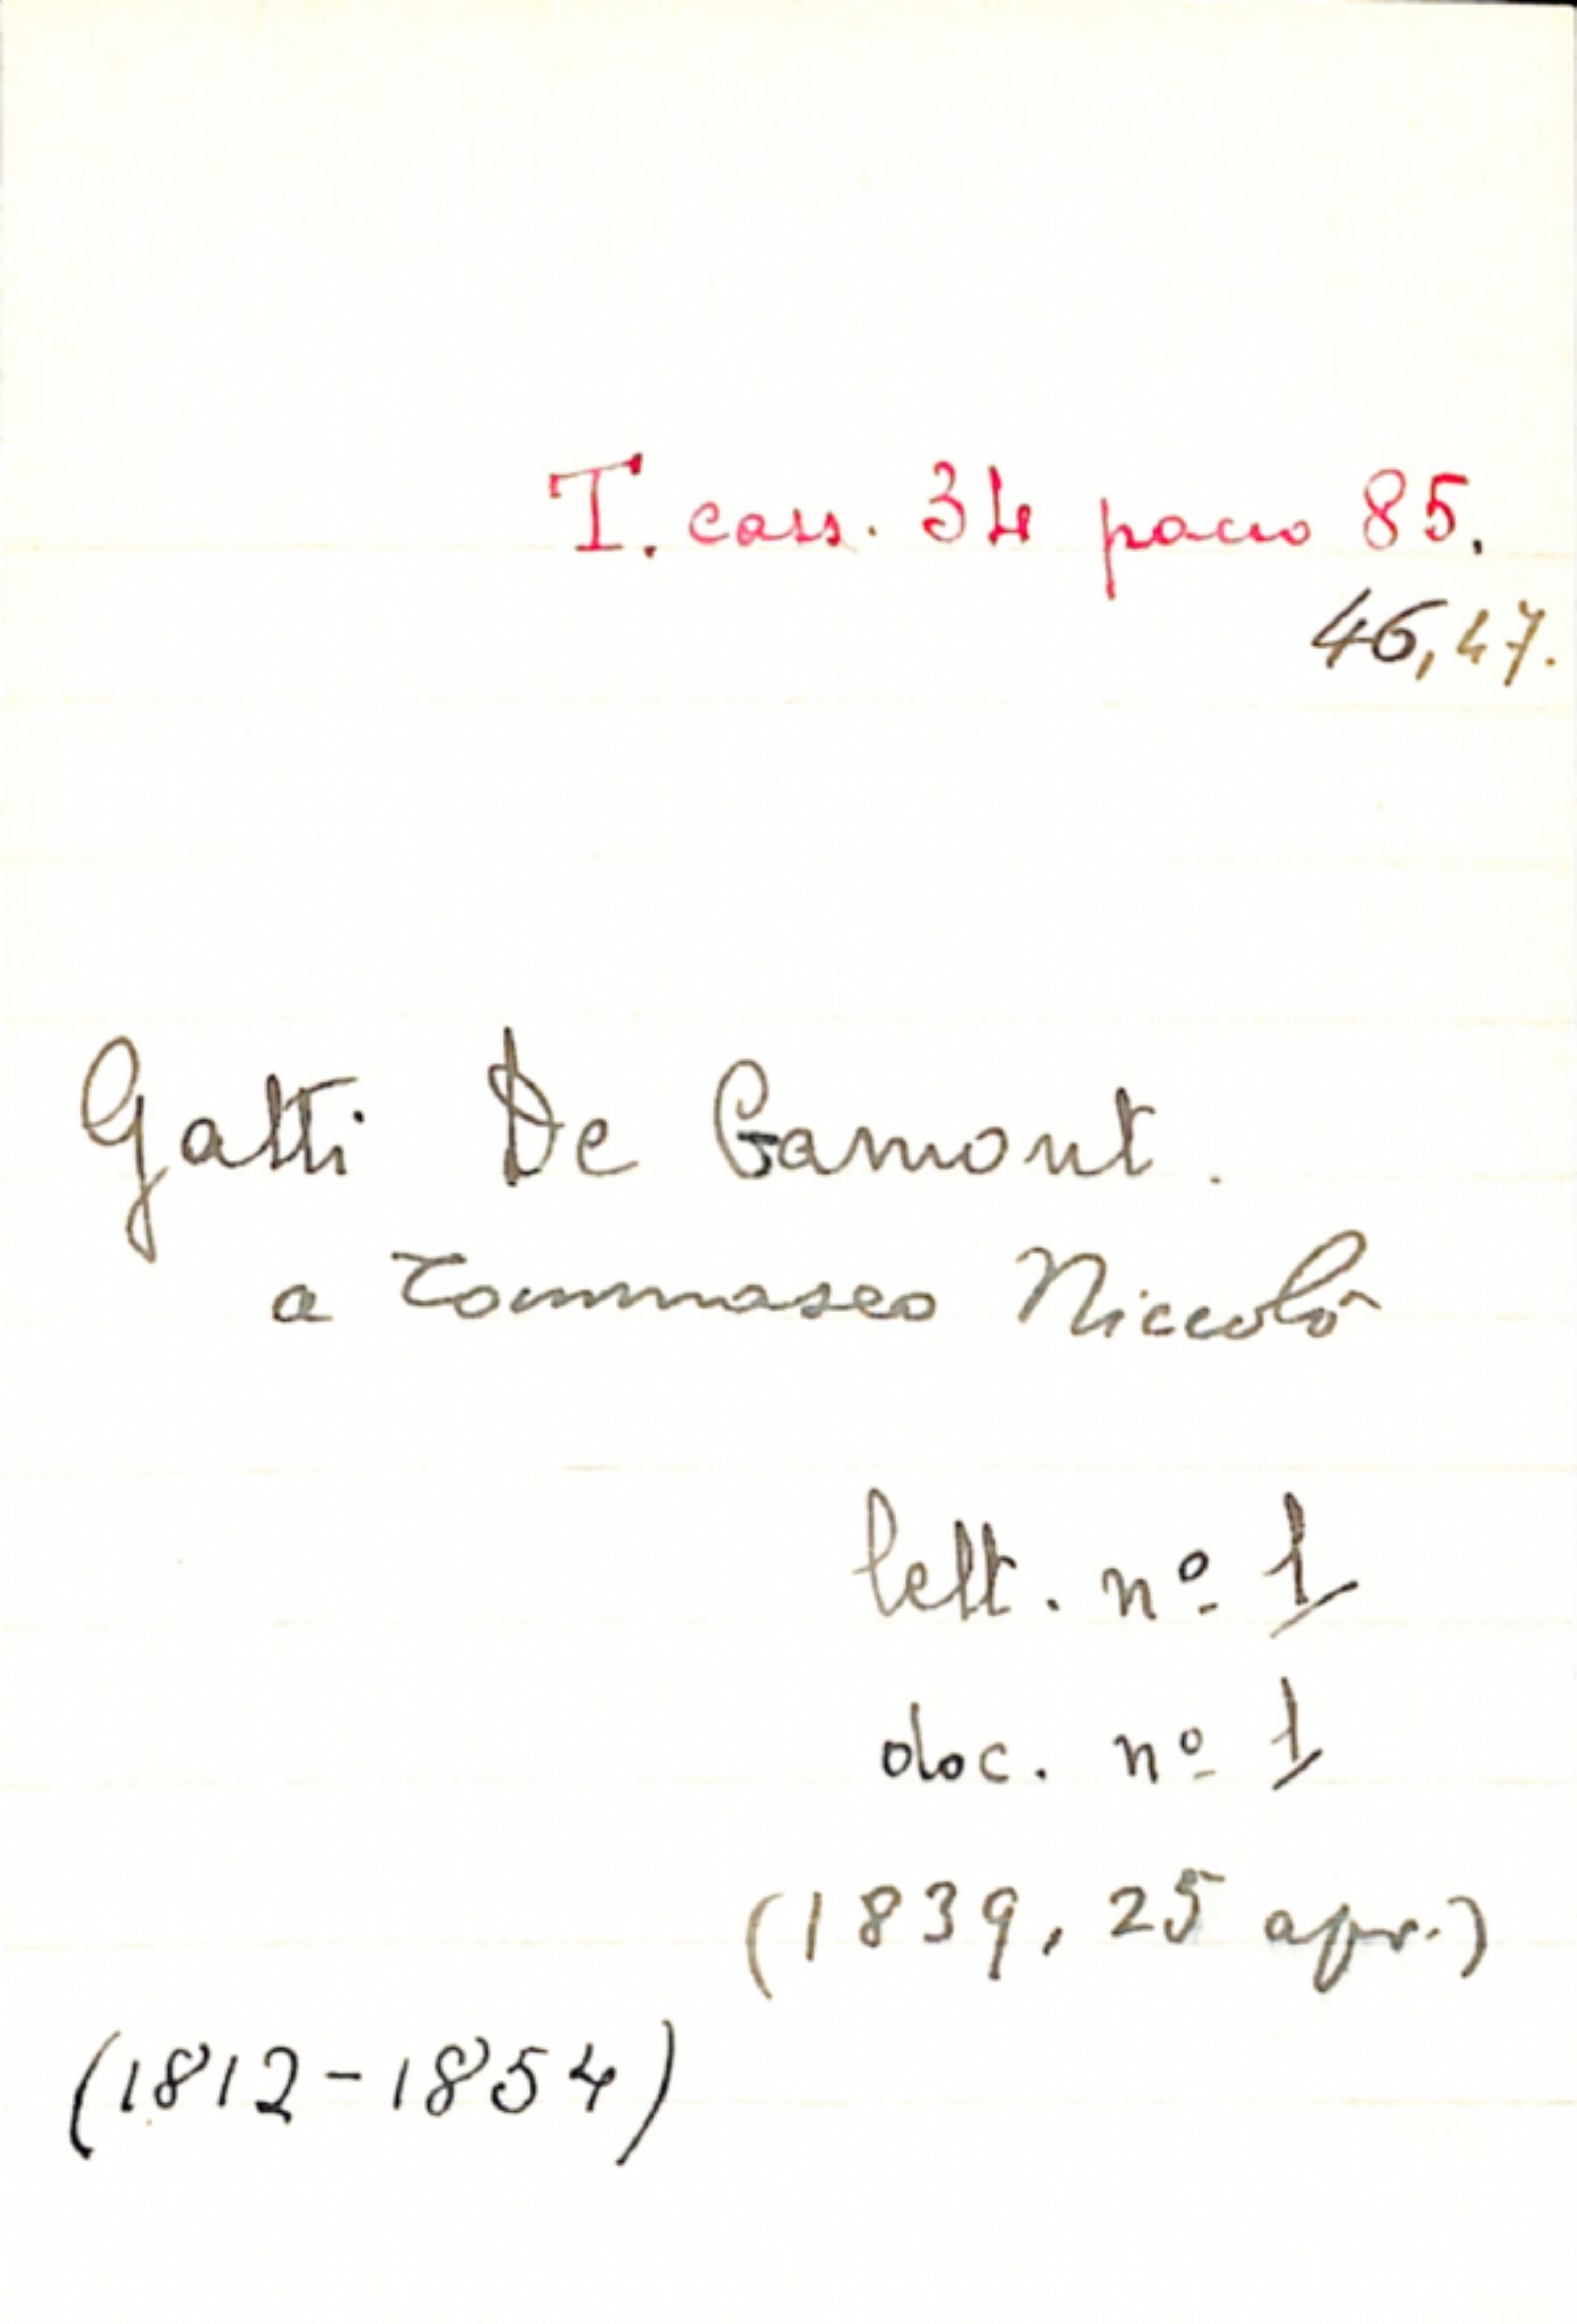 T. cass. 34 pacco 85.
46,47.
Gatti De Gamont.
a Tommaseo Niccolò
lett. nº 1
doc. nº 1
(1839, 25 apr.)
(1812-1854)